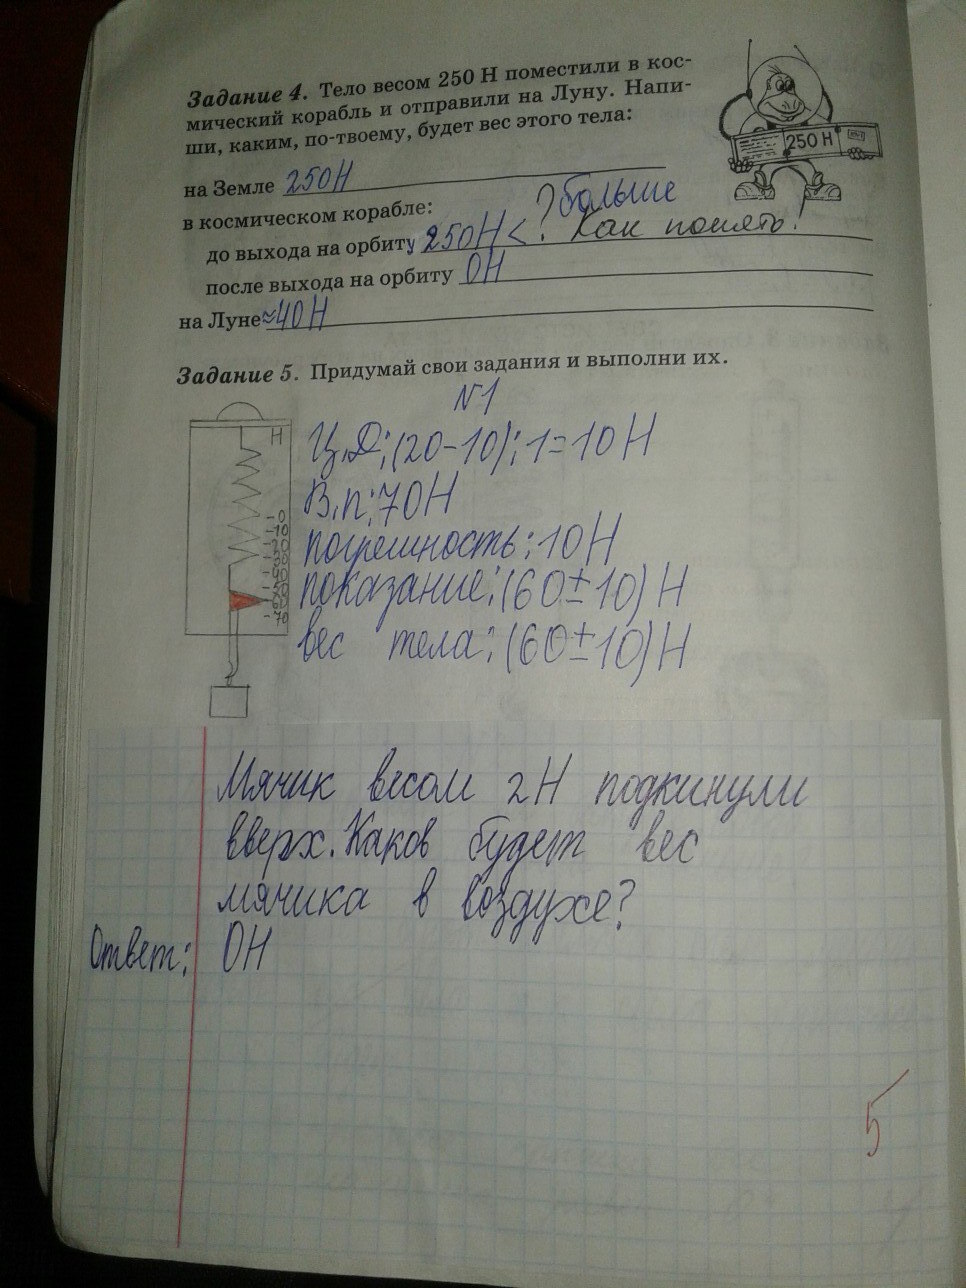 Задание 4. Тело весом 250 Н поместили в кос-
мический корабль и отправили на Луну. Напи-
ши, каким, по-твоему, будет вес этого тела:
250 Н
на Земле 250Н
в космическом корабле:
? больше
до выхода на орбиту 250Н < ? Как понять!
после выхода на орбиту 0Н
на Луне ≈40Н
Задание 5. Придумай свои задания и выполни их.
N1
Н
Ц.Д: (20-10):1=10Н
В.п: 70Н
погрешность: 10Н
показание: (60±10)Н
вес тела: (60±10)Н
-0
-10
-20
-30
-40
-50
-60
-70
Мячик весом 2Н подкинули
вверх. Каков будет вес
мячика в воздухе?
Ответ: 0Н
5